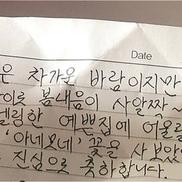 Date
은 차가운 바람이지만
이로 봄내음이 사알짝~
렐림한 예쁜집에 어울릴
'아네모네' 꽃을 사 보았
진심으로 축하합니다.